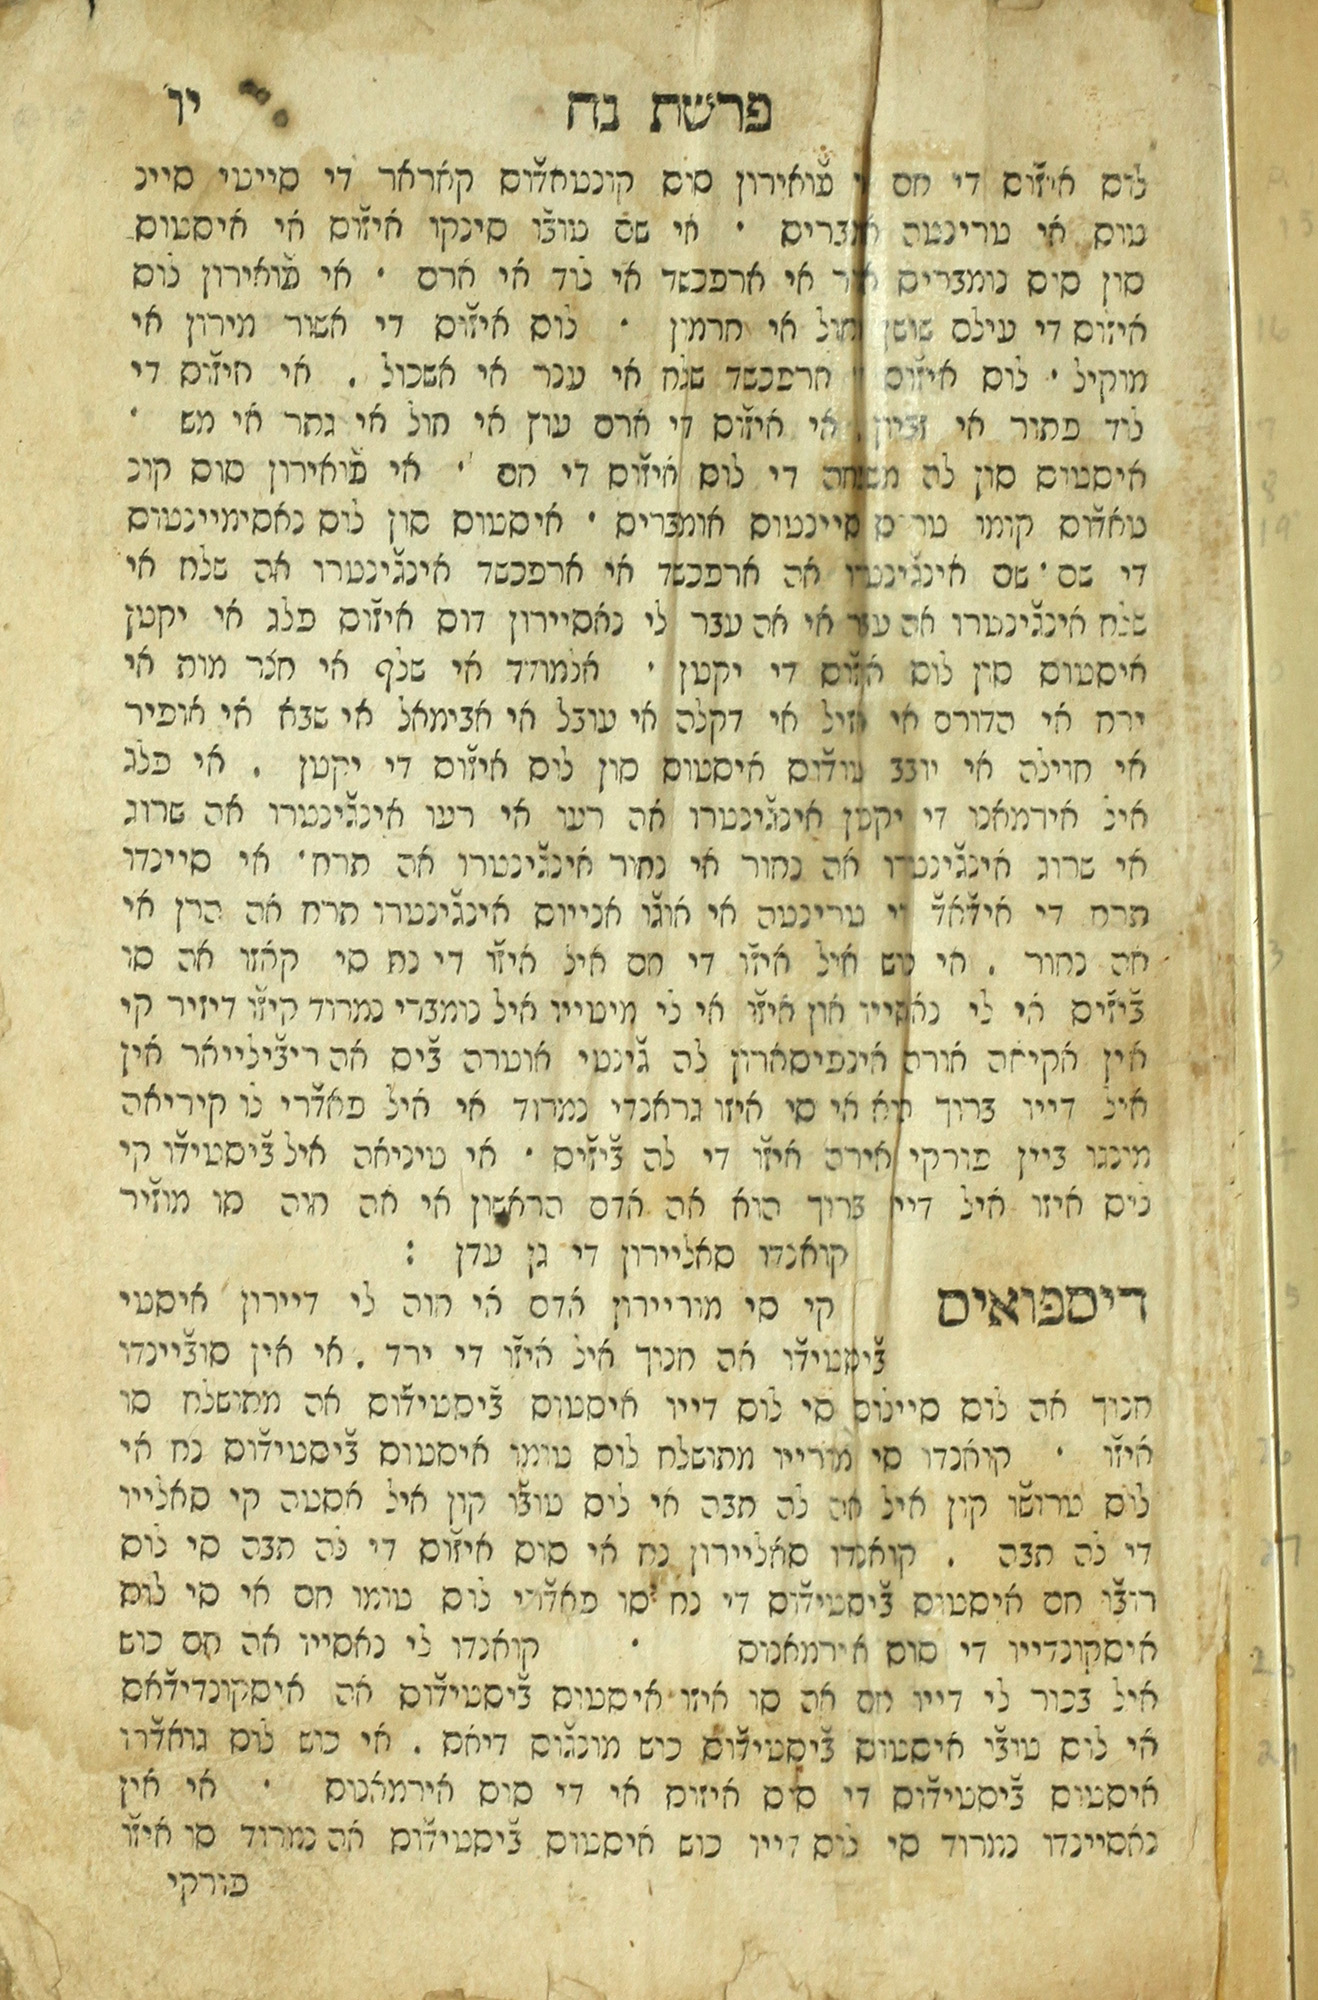 פרשת נח יו
לוס איז׳וס די חס פ׳ואירון סוס קונטאד׳וס קאראר די סייטי סיינ
טוס אי טרינטה אומבריס ׳ אי שם טובו׳ סינקו איז׳וס אי איסטוס
סון סוס נומבריס אור אי ארפכשד אי לוד אי ארם ׳ אי פ׳ואירון לוס
איזוס די עילם שושן חול אי חרמון ׳ לוס איז׳וס די אשור מירון אי
מוקיל ׳ לוס איז׳וס די ארפכשד שלח אי עבר אי אשכול . אי איז׳וס די
לוד פתור אי וביון . אי איז׳וס די ארם עוץ אי חול אי גתר אי מש ׳
איסטוס סון לה משפחה די לוס איז׳וס די חם ׳ אי פ׳ואירון סוס קונ
טאד׳וס קומו טריס סיינטוס אומבריס ׳ איסטוס סון לוס נאסימיינטוס
די שם ׳ שם אינג׳ינטרו אה ארפכשד אי ארפכשד אינג׳ינטרו אה שלח אי
שלח אינג׳ינטרו אה עבר אי אה עבר לי נאסיירון דוס איז׳וס פלג אי יקטן
איסטוס סון לוס איז׳וס די יקטן ׳ אלמודד אי שלף אי חצר מות אי
ירח אי הדורם אי אוזל אי דקלה אי עובל אי אבימאל אי שבא אי אופיר
אי חוילה אי יובב טוד׳וס איסטוס סון לוס איז׳וס די יקטן . אי פלג
איל אירמאנו די יקטן אינג׳ינטרו אה רעו אי רעו אינג׳ינטרו אה שרוג
אי שרוג אינג׳ינטרו אה נחור אי נחור אינג׳ינטרו אה תרח ׳ אי סיינדו
תרח די איד׳אד׳ די טרינטה אי אוג׳ו אנייוס אינג׳ינטרו תרח אה הרן אי
אה נחור . אי כוש איל איז׳ו די חם איל איז׳ו די נח סי קאזו אה סו
ב׳יז׳יס אי לי נאסייו און איז׳ו אי לי מיטייו איל נומברי נמרוד קיז׳ו דיזיר קי
אין אקיאה אורה אינפיסארון לה ג׳ינטי אוטרה ב׳יס אה ריב׳ילייאר אין
איל דייו ברוך הוא אי סי איזו גראנדי נמרוד אי איל פאד׳רי לו קיריאה
מונגו ביין פורקי אירה איז׳ו די לה ב׳יז׳יס ׳ אי טיניאה איל ב׳יסטיד׳ו קי
ליס איזו איל דייו ברוך הוא אה אדם הראשון אי אה חוה סו מוז׳יר
קואנדו סאליירון די גן עדן :
דיספואיס קי סי מוריירון אדם אי חוה לי דיירון איסטי
ב׳יסטיד׳ו אה חנוך איל איז׳ו די ירד . אי אין סוב׳יינדו
חנוך אה לוס סיינוס סי לוס דייו איסטוס ב׳יסטיד׳וס אה מתושלח סו
איז׳ו ׳ קואנדו סי מורייו מתושלח לוס טומו איסטוס ב׳יסטיד׳וס נח אי
לוס טרוש׳ו קון איל אה לה תבה אי לוס טוב׳ו קון איל אסטה קי סאלייו
די לה תבה . קואנדו סאליירון נח אי סוס איז׳וס די לה תבה סי לוס
רוב׳ו חם איסטוס ב׳יסטיד׳וס די נח סו פאד׳רי לוס טומו חם אי סי לוס
איסקונדייו די סוס אירמאנוס ׳ קואנדו לי נאסייו אה חם כוש
איל בכור לי דייו חם אה סו איזו איסטוס ב׳יסטיד׳וס אה איסקונדיד׳אס
אי לוס טוב׳ו איסטוס ב׳יסטיד׳וס כוש מונג׳וס דיאס . אי כוש לוס גואד׳רו
איסטוס ב׳יסטיד׳וס די סוס איזוס אי די סוס אירמאנוס ׳ אי אין
נאסיינדו נמרוד סי לוס דייו כוש איסטוס ב׳יסטיד׳וס אה נמרוד סו איז׳ו
פורקי